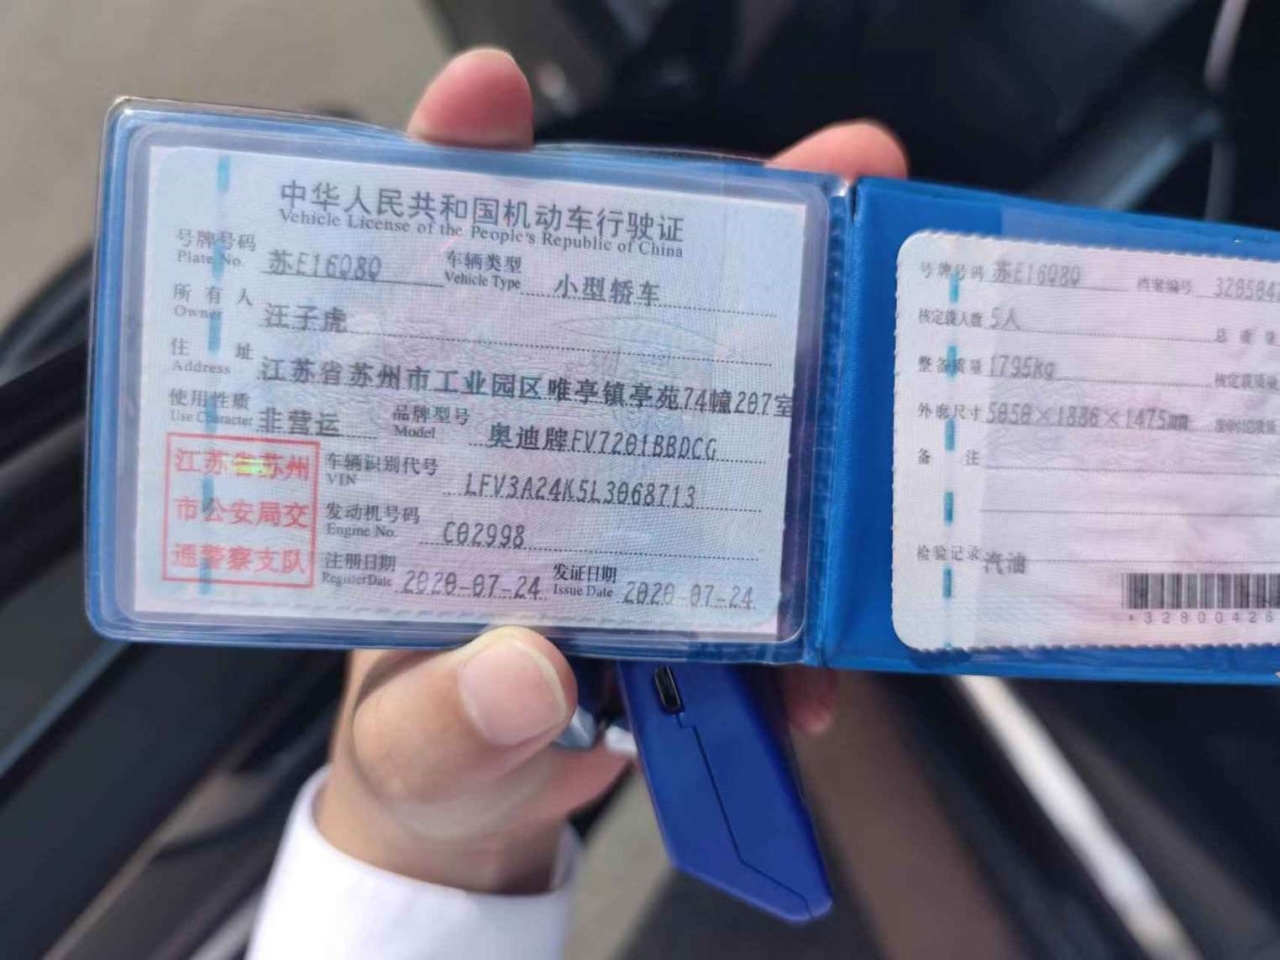 中华人民共和国机动车行驶证
Vehicle License of the People's Republic of China
号牌号码 苏E16Q8Q 车辆类型 小型轿车
Plate No. Vehicle Type
所有人 汪子虎
Owner
住址 江苏省苏州市工业园区唯亭镇亭苑74幢207室
Address
使用性质 非营运 品牌型号 奥迪牌FV7201BBDCG
Use Character Model
江苏省苏州
市公安局交
通警察支队
车辆识别代号 LFV3A24K5L3068713
VIN
发动机号码 C02998
Engine No.
注册日期 2020-07-24 发证日期 2020-07-24
Register Date Issue Date
号牌号码 苏E16Q8Q 档案编号 320504
核定载人数 5人 总质量
整备质量 1795kg 核定载质量
外廓尺寸 5050×1886×1475mm
备注
检验记录 汽油
*32800426